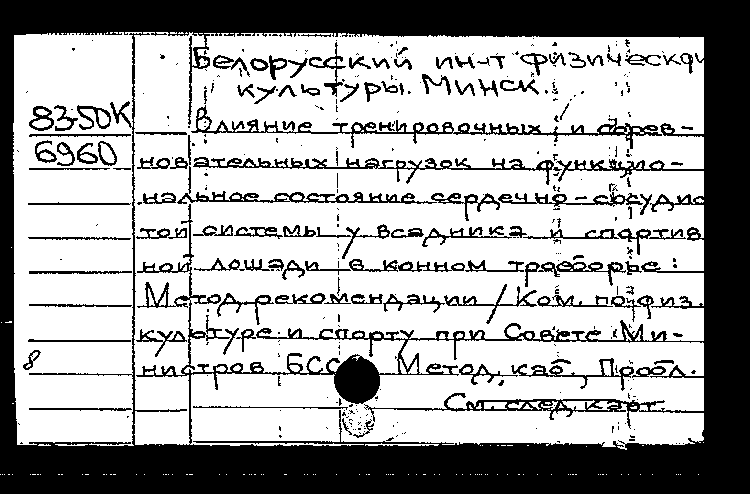 Белорусский ин-т физической
культуры. Минск.
83-50К
Влияние тренировочных и сорев-
6960
новательных нагрузок на функцио-
нальное состояние сердечно-сосудис
той системы у всадника и спортив
ной лошади в конном троеборье:
Метод. рекомендации / Ком. по физ.
культуре и спорту при Совете Ми-
8
нистров БССР Метод. каб., Пробл.
См. след. карт.